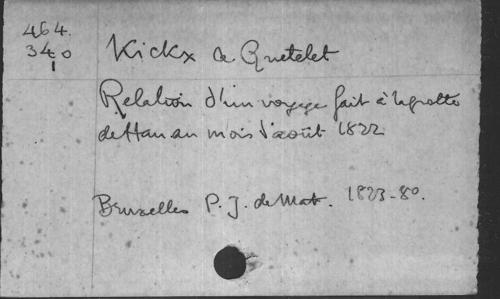 464.
340
1
Kickx & Quetelet
Relation d'un voyage fait à la grotte
de Han au mois d'août 1822
Bruxelles P. J. de Mat. 1823-8o.